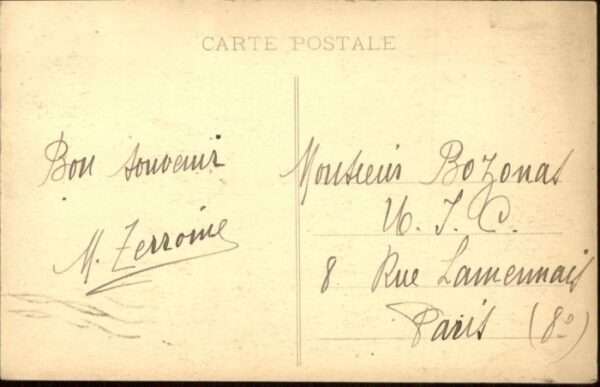 CARTE POSTALE
Bon souvenir
M. Zerroine
Monsieur Bozonat
U. J. C.
8 Rue Lamennais
Paris (8°)